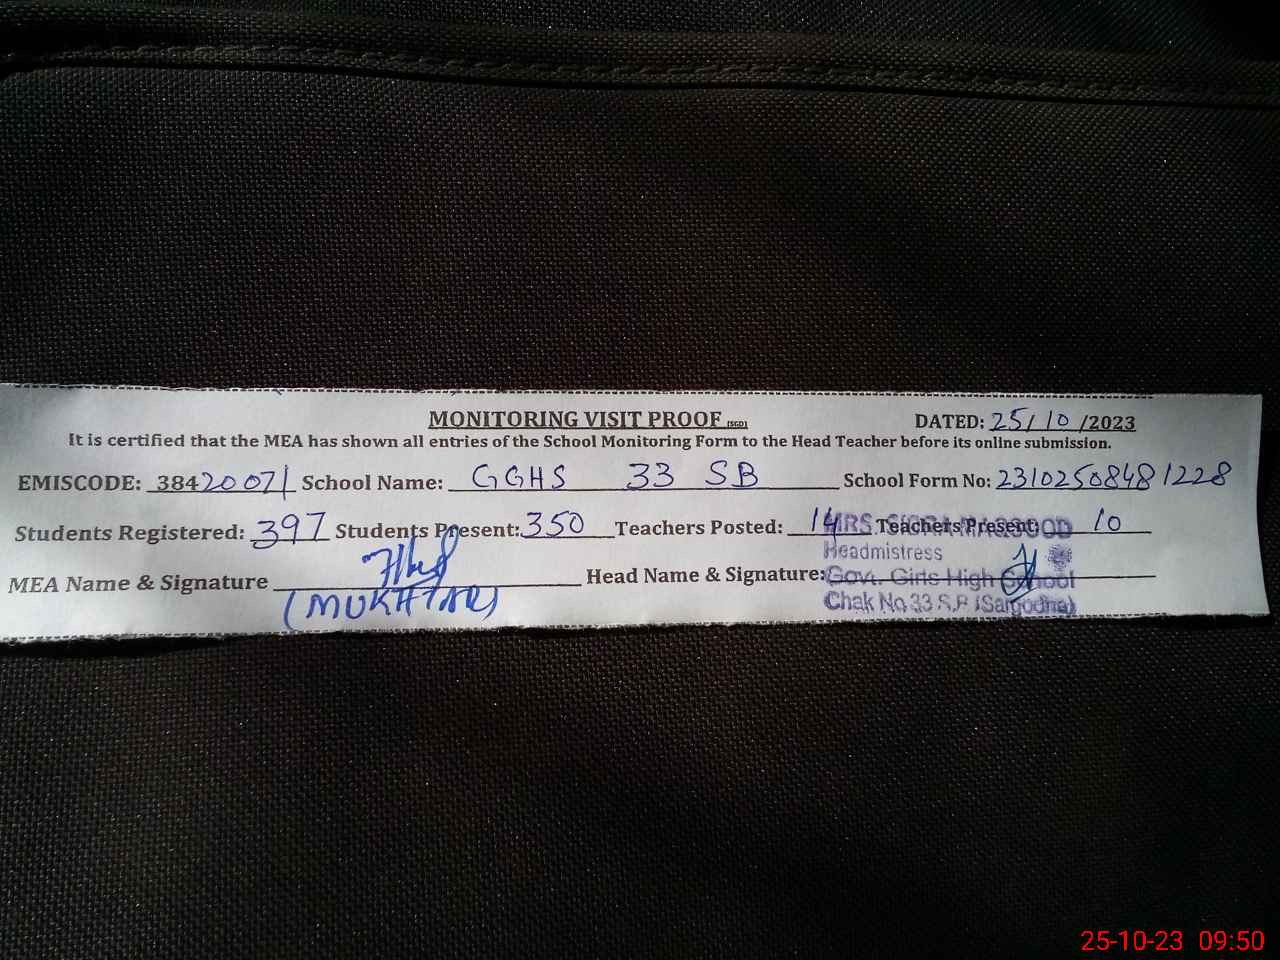 MONITORING VISIT PROOF (SGD) DATED: 25/10/2023
It is certified that the MEA has shown all entries of the School Monitoring Form to the Head Teacher before its online submission.
EMISCODE: 38420071 School Name: GGHS 33 SB School Form No: 23102508481228
Students Registered: 397 Students Present: 350 Teachers Posted: 14 Teachers Present: 10
MRS.
Headmistress
MEA Name & Signature Head Name & Signature:
Govt. Girls High School
(MUKHTAR)
Chak No.33 S.B (Sargodha)
25-10-23 09:50